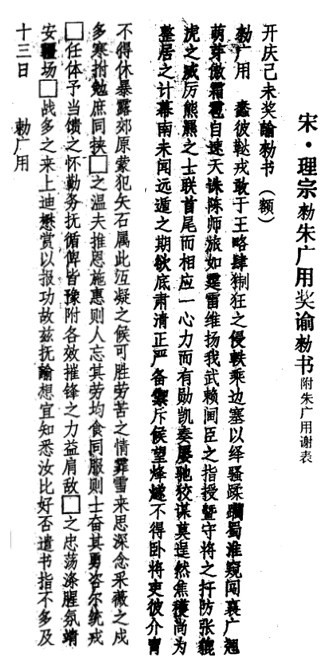 宋·理宗勑朱广用奖谕勑书附朱广用谢表
开庆己未奖諭勑书（额）
勑广用　蠢彼鞑戎敢于王略肆猘狂之侵軼乘边塞以绎骚蹂躏蜀淮窥闯襄广翘
萌芽傲霜雹自速天诛陈师旅如霆雷维扬我武赖阃臣之指授暨守将之扞防张貔
虎之威厉熊羆之士联首尾而相应一心力而有勋凯奏屡驰狡谋莫逞然焦穫尚为
整居之计幕南未闻远遁之期欲底肃清正严备禦斥候望烽燧不得卧将吏彼介胄
不得休暴露郊原蒙犯矢石属此沍凝之候可胜劳苦之情霏雪来思深念采薇之戍
多寒拊勉庶同挟□之温夫推恩施惠则人忘其劳均食同服则士奋其勇咨尔统戎
□任体予当馈之怀勤务抚循俾皆豫附各效摧锋之力益肩敌□之忠荡涤腥氛靖
安疆場□战多之来上迪懋赏以报功故兹抚諭想宜知悉汝比好否遣书指不多及
十三日　勑广用